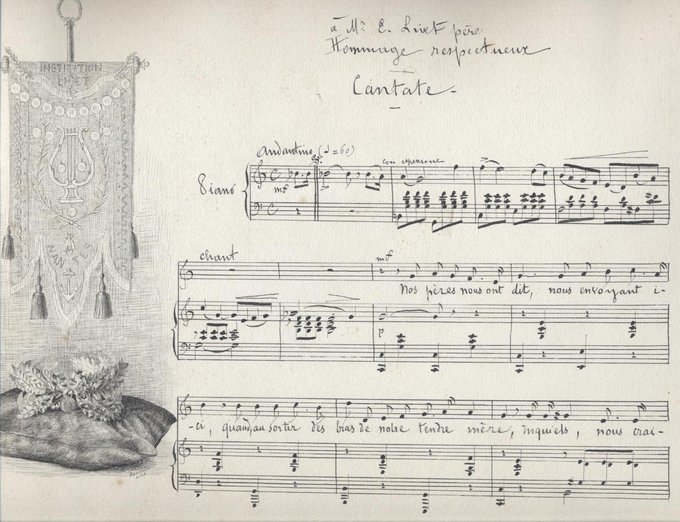 à Mr E. Livet père
Hommage respectueux
Cantate
INSTITUTION
LIVET
NANTES
Andantino (♩=60)
con espressione
Piano
mf
chant
mf
Nos pères nous ont dit, nous envoyant i-
p
-ci, quand, au sortir des bras de notre tendre mère, inquiets, nous crai-